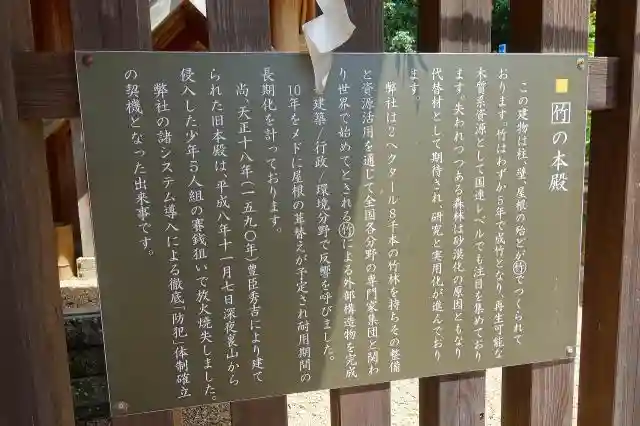 竹の本殿
この建物は柱、壁、屋根の殆どが竹でつくられて
おります。竹はわずか5年で成竹となり、再生可能な
木質系資源として国連レベルでも注目を集めており
ます。失われつつある森林は砂漠化の原因ともなり
代替材として期待され、研究と実用化が進んでおり
ます。
弊社は2ヘクタール8千本の竹林を持ちその整備
と資源活用を通じて全国各分野の専門家集団と関わ
り世界で始めてとされる竹による外部構造物を完成
建築/行政/環境分野で反響を呼びました。
10年をメドに屋根の葺替えが予定され耐用期間の
長期化を計っております。
尚、天正十八年(一五九〇年)豊臣秀吉により建て
られた旧本殿は、平成八年十一月七日深夜裏山から
侵入した少年5人組の賽銭狙いで放火焼失しました。
弊社の諸システム導入による徹底「防犯」体制確立
の契機となった出来事です。